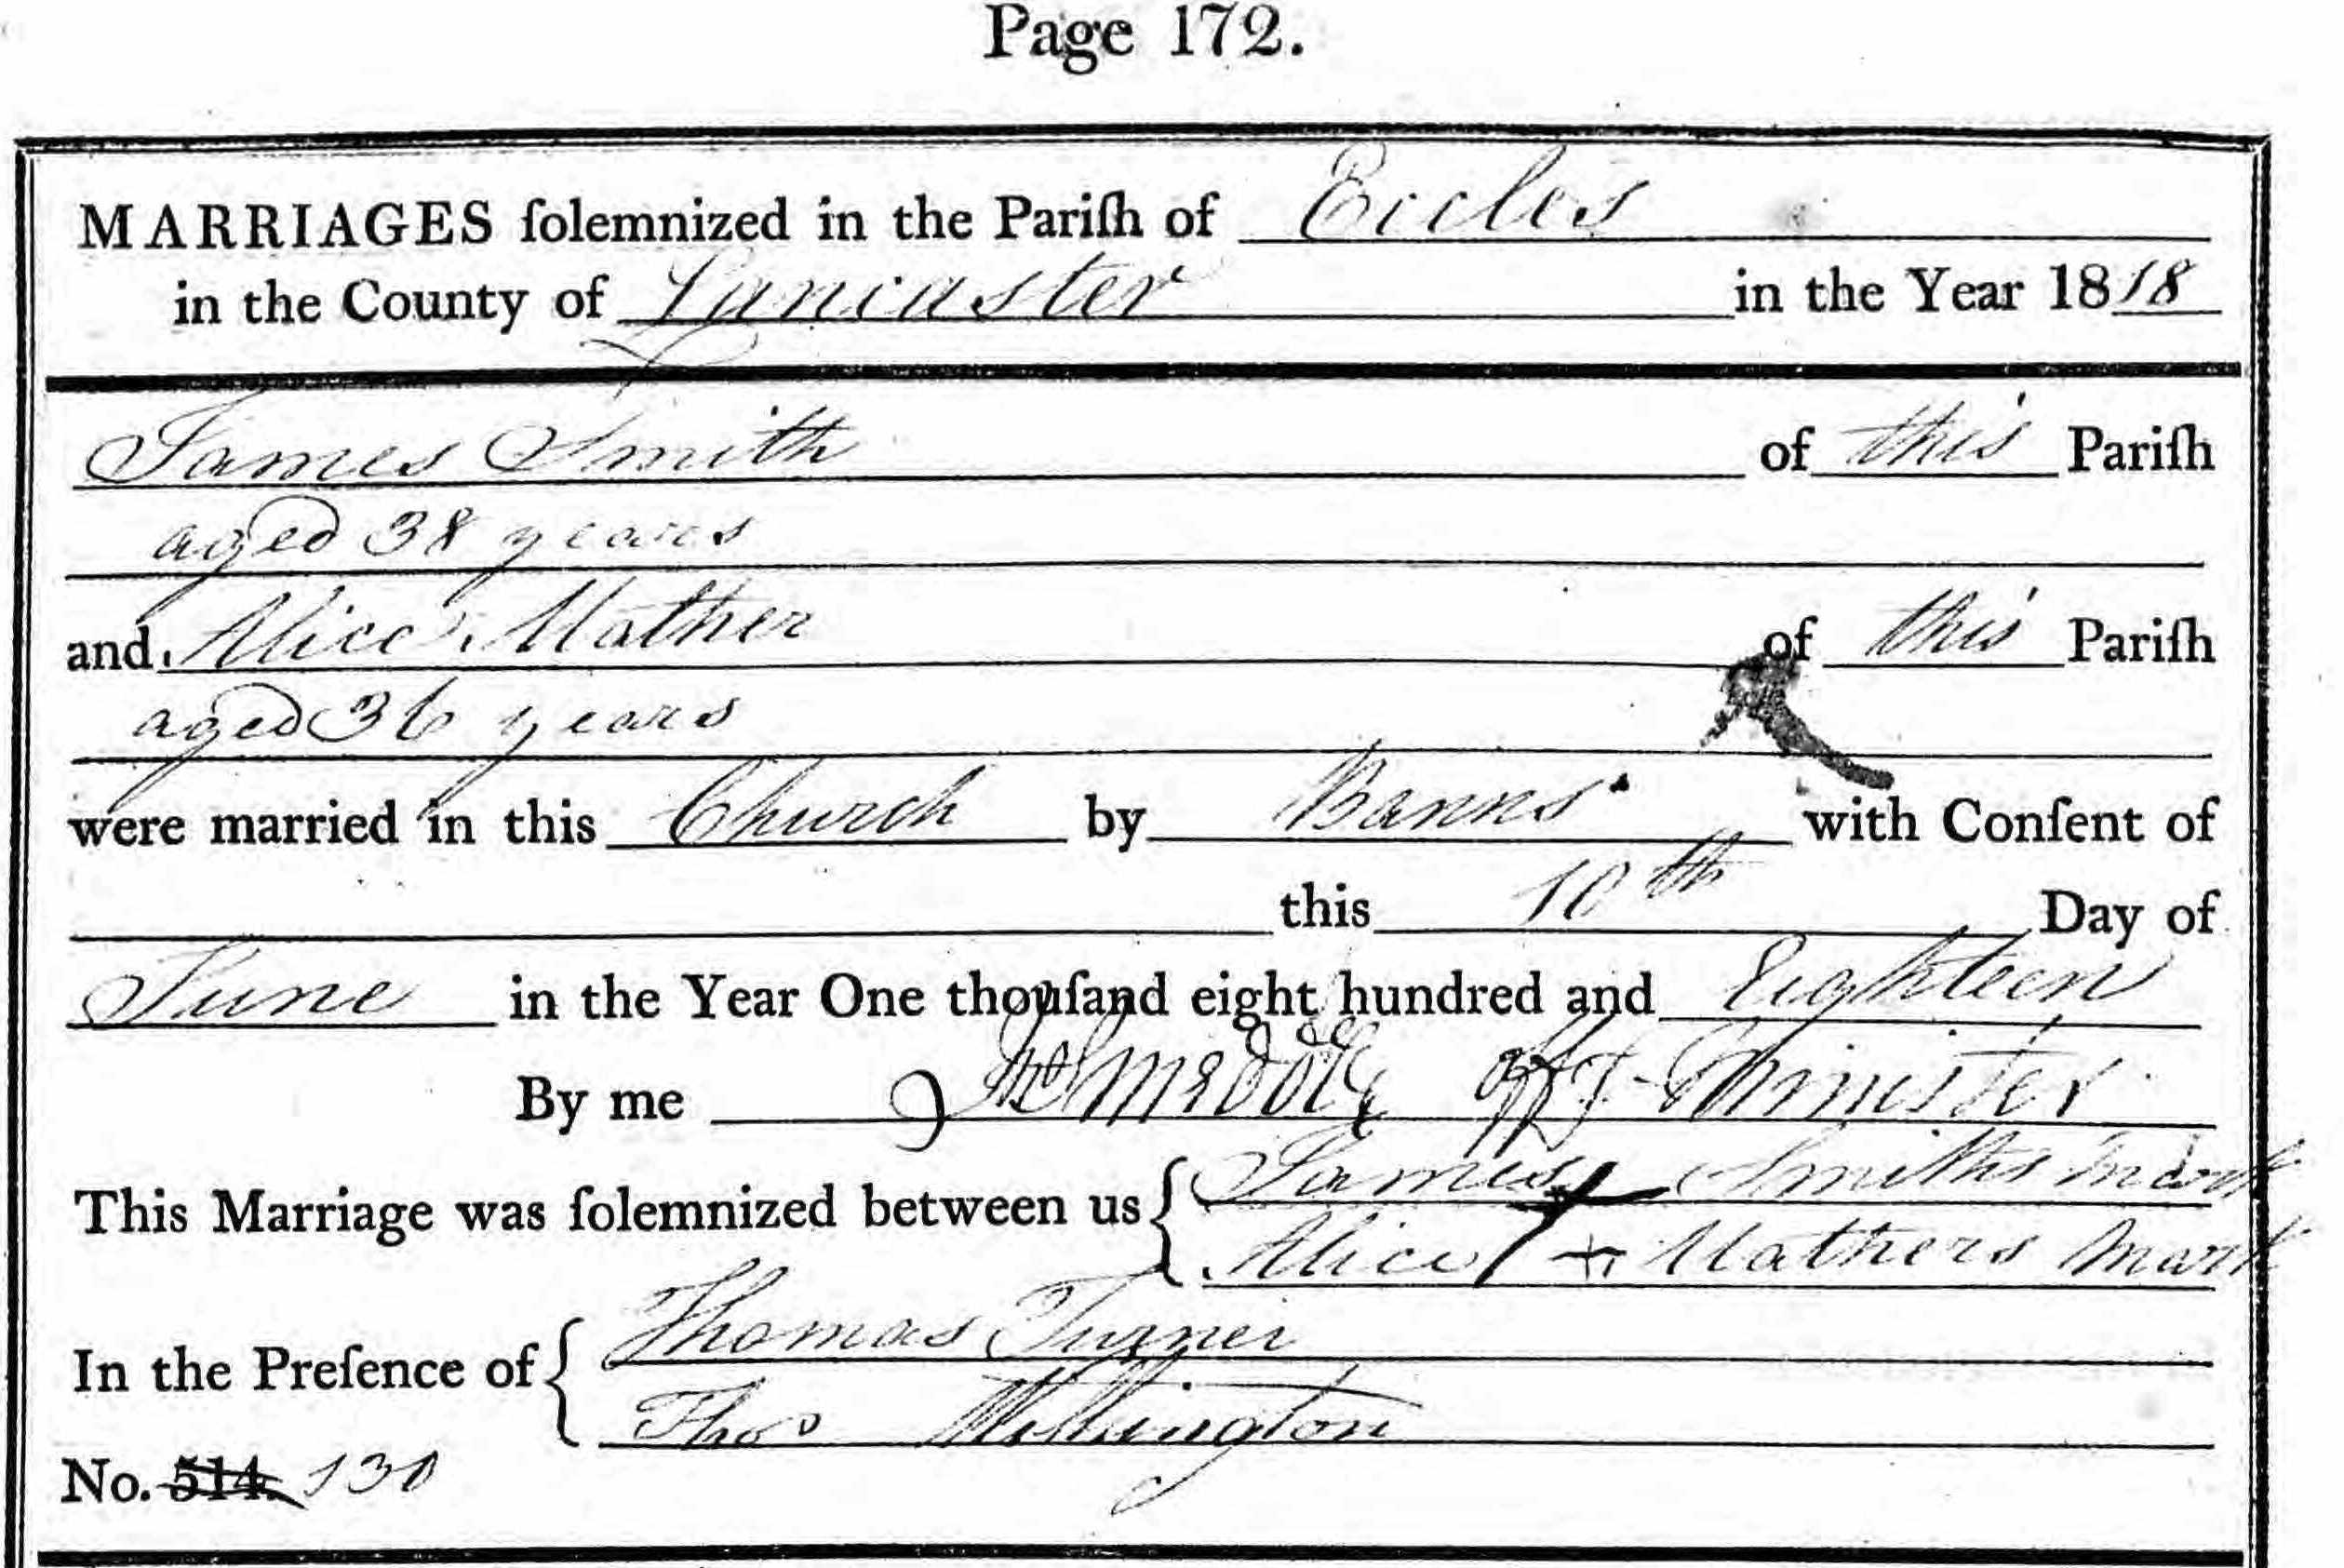 Page 172.
MARRIAGES ſolemnized in the Pariſh of Eccles
in the County of Lancaster in the Year 1818
James Smith of this Pariſh
aged 38 years
and Alice Mather of this Pariſh
aged 36 years
were married in this Church by Banns with Conſent of
this 10th Day of
June in the Year One thouſand eight hundred and Eighteen
By me Minister
This Marriage was ſolemnized between us { James + Smiths mark
Alice + Mathers Mark
In the Preſence of { Thomas Turner
Thos Millington
No. 514. 130